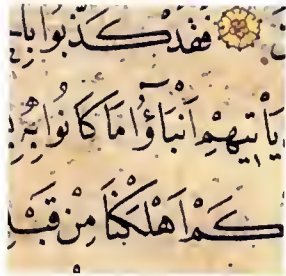 فَقَدْ كَذَّبُوا بِا
يَأْتِيهِمْ اَنْبَاؤُا مَا كَانُوا بِهِ
كَمْ اَهْلَكْنَا مِنْ قَبْلِ